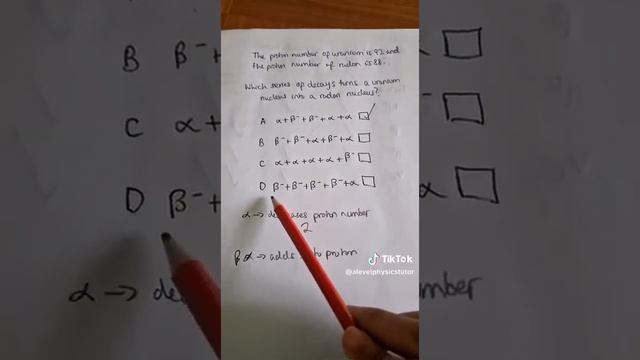 The proton number of uranium is 92 and
the proton number of radon is 88.
Which series of decays turns a uranium
nucleus into a radon nucleus?
A α + β⁻ + β⁻ + α + α
B β⁻ + β⁻ + α + β⁻ + α
C α + α + α + α + β⁻
D β⁻ + β⁻ + β⁻ + β⁻ + α
α → decreases proton number
2
β α → adds to proton
TikTok
@alevelphysicstutor
B β⁻
C α +
D β⁻ +
α → de
α
number